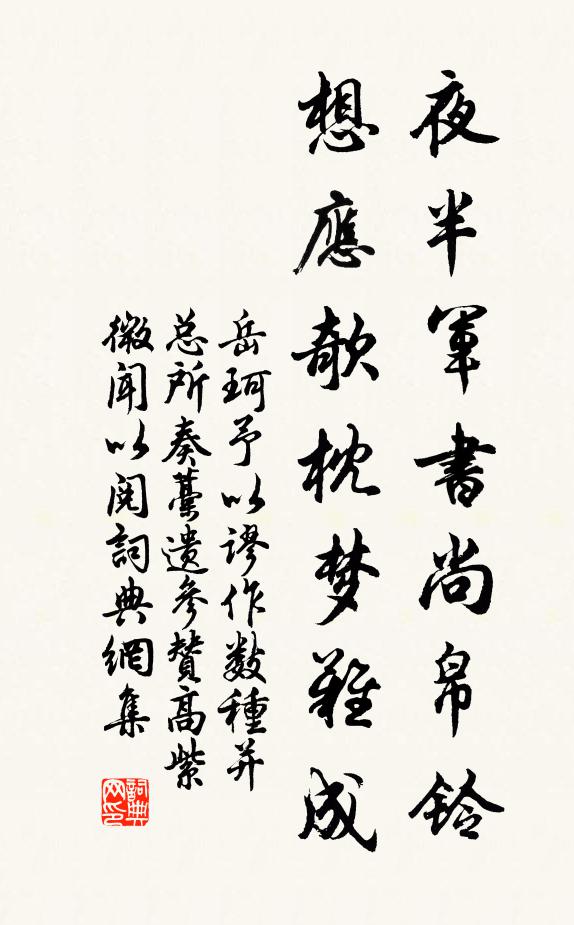 夜半軍書尚帛鈴
想應欹枕梦難成
岳珂予以謬作数種并
总所奏藁遗參賛高紫
微闻以阅詞典網集
詞典网印